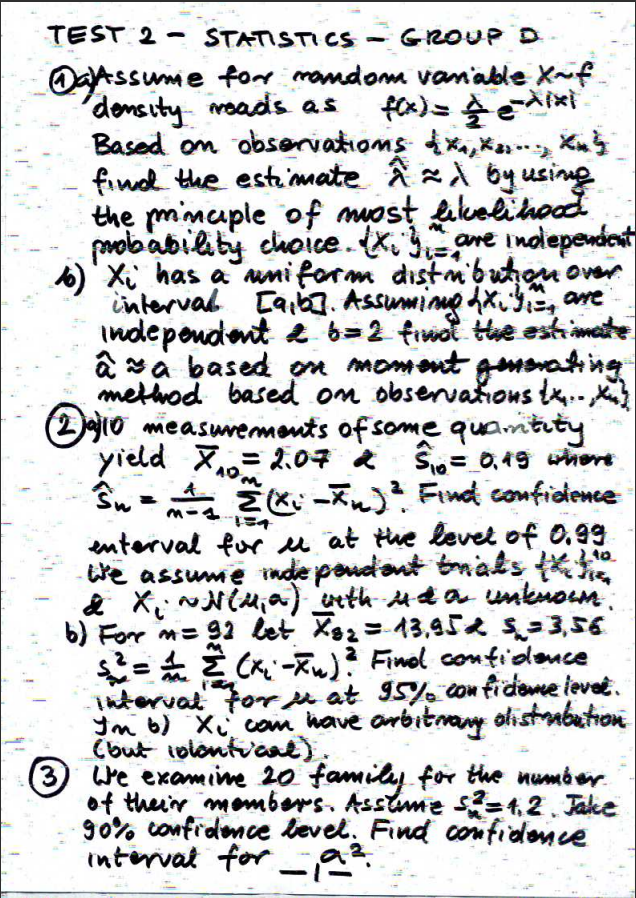 TEST 2 - STATISTICS - GROUP D
① a) Assume for random variable X~f
density reads as f(x) = λ/2 e^{-λ|x|}
Based on observations {x₁, x₂, ..., xₙ}
find the estimate λ̂ ≈ λ by using
the principle of most likelihood
probability choice. {Xᵢ}ᵢ₌₁ⁿ are independent
b) Xᵢ has a uniform distribution over
interval [a,b]. Assuming {Xᵢ}ᵢ₌₁ⁿ are
independent & b=2 find the estimate
â ≈ a based on moment generating
method based on observations {x₁..., xₙ}
② a) 10 measurements of some quantity
yield X̄₁₀ = 2.07 & Ŝ₁₀ = 0.19 where
Ŝₙ = 1/(n-1) Σᵢ₌₁ⁿ (xᵢ - X̄ₙ)². Find confidence
enterval for u at the level of 0.99
We assume independent trials {Xᵢ}ᵢ₌₁¹⁰
& Xᵢ ~ N(u,a) with u & a unknown.
b) For n = 92 let X̄₉₂ = 13,95 & Sₙ = 3,56
Sₙ² = 1/n Σᵢ₌₁ⁿ (Xᵢ - X̄ₙ)². Find confidence
interval for u at 95% confidence level.
In b) Xᵢ can have arbitrary distribution
(but identical).
③ We examine 20 family for the number
of their members. Assume Sₙ² = 1,2. Take
90% confidence level. Find confidence
interval for a².
-|-